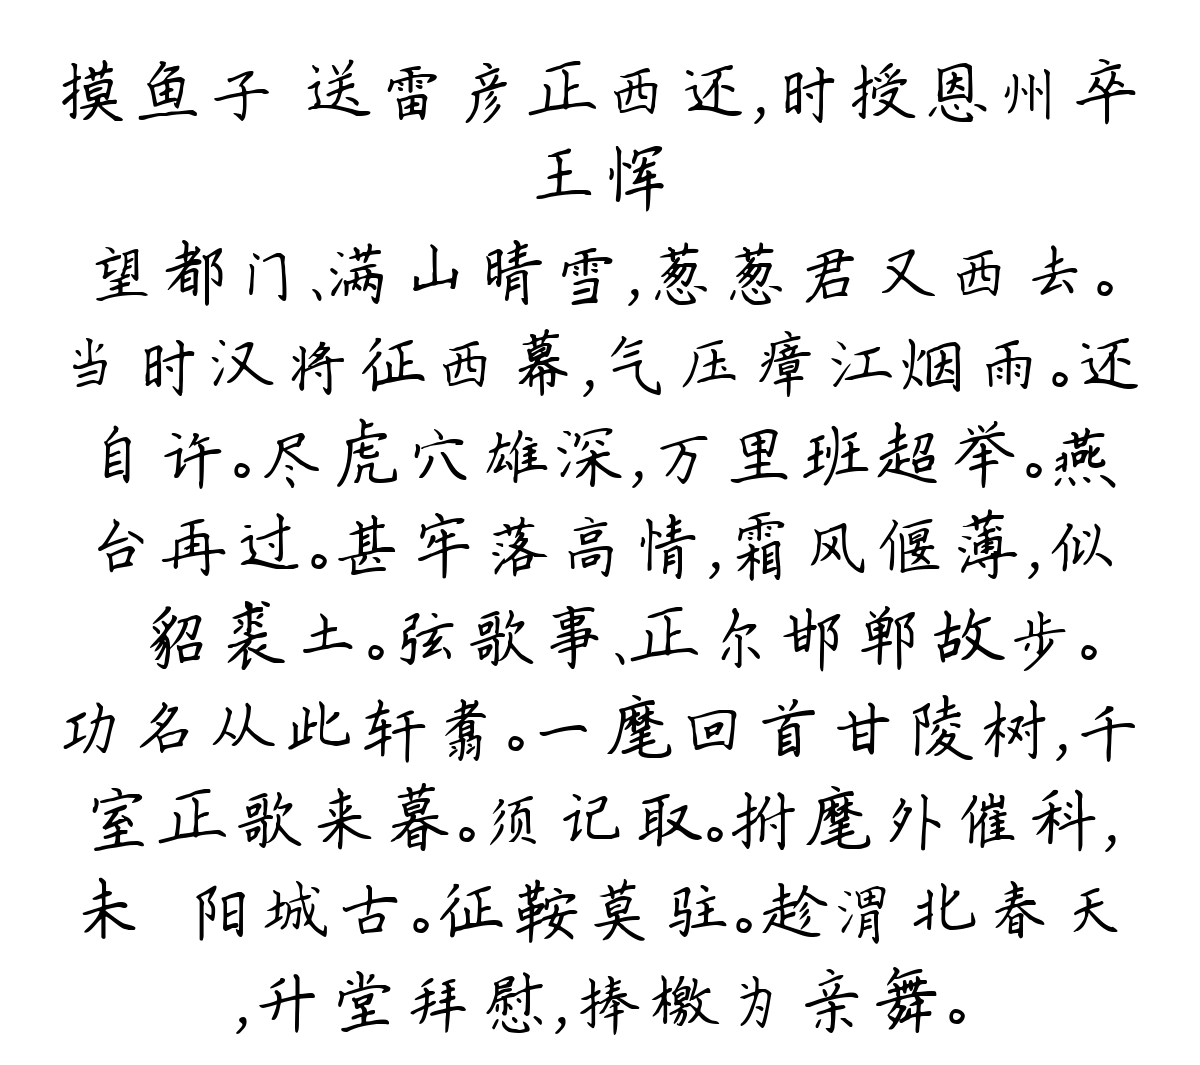 摸鱼子 送雷彦正西还,时授恩州卒
王恽
望都门、满山晴雪,葱葱君又西去。
当时汉将征西幕,气压瘴江烟雨。还
自许。尽虎穴雄深,万里班超举。燕
台再过。甚牢落高情,霜风偃薄,似
貂裘土。弦歌事、正尔邯郸故步。
功名从此轩翥。一麾回首甘陵树,千
室正歌来暮。须记取。拊麾外催科,
未 阳城古。征鞍莫驻。趁渭北春天
,升堂拜慰,捧檄为亲舞。